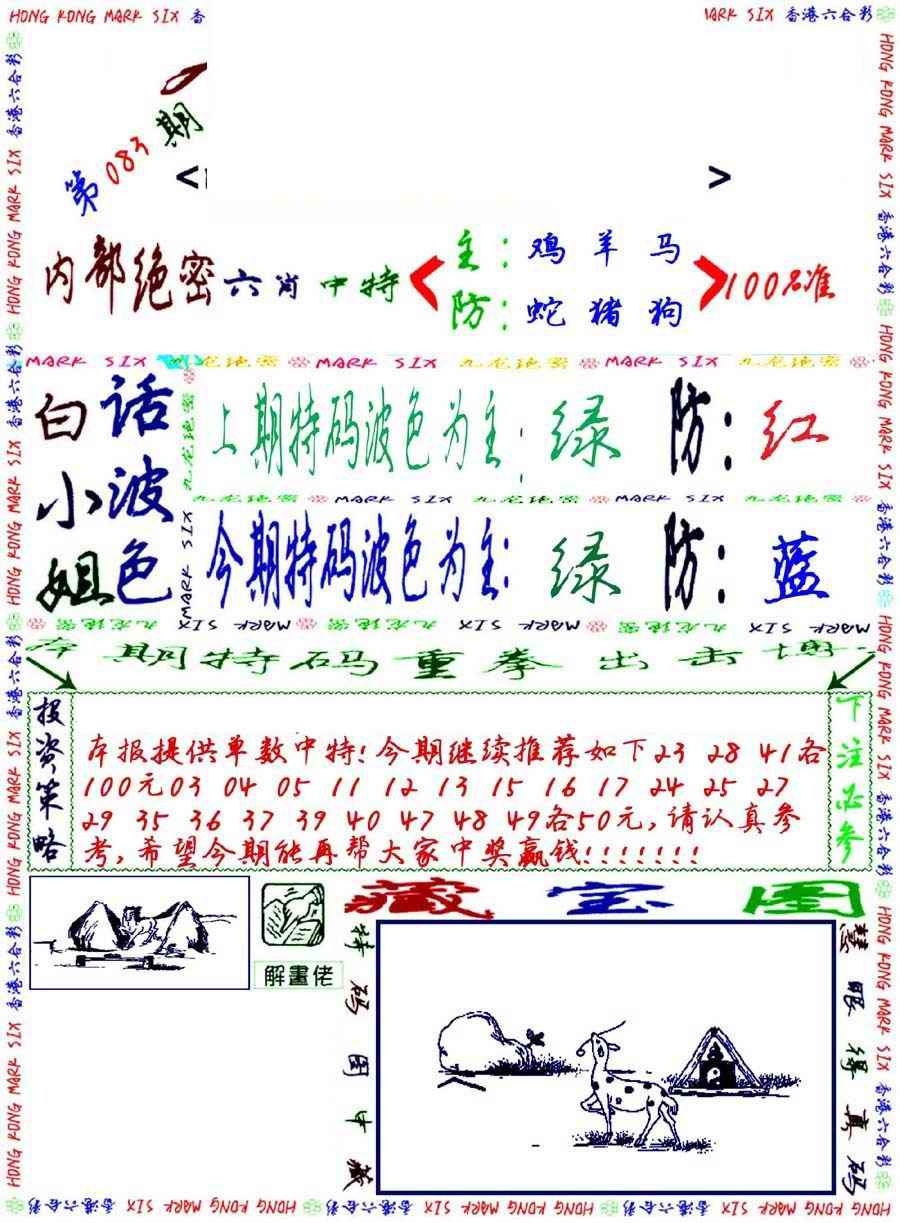 HONG KONG MARK SIX 香
MARK SIX 香港六合彩
第083期
< >
内部绝密六肖中特
主：鸡羊马
防：蛇猪狗
100%准
MARK SIX 九龙绝密 MARK SIX 九龙绝密 MARK SIX 九龙绝密
白话
小波
姐色
上期特码波色为主：绿 防：红
九龙绝密 MARK SIX 九龙绝密 MARK SIX 九龙绝密
今期特码波色为主：绿 防：蓝
MARK SIX 九龙绝密 MARK SIX 九龙绝密 MARK SIX
本期特码重拳出击
投资策略
本报提供单数中特！今期继续推荐如下23 28 41各
100元03 04 05 11 12 13 15 16 17 24 25 27
29 35 36 37 39 40 47 48 49各50元,请认真参
考,希望今期能再帮大家中奖赢钱!!!!!!!
下注必参
解畫佬
藏宝图
特码图中藏
慧眼得真码
HONG KONG MARK SIX 香港六合彩